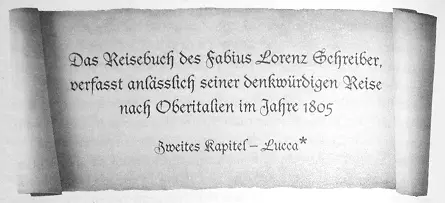 Das Reisebuch des Fabius Lorenz Schreiber,
verfasst anlässlich seiner denkwürdigen Reise
nach Oberitalien im Jahre 1805
Zweites Kapitel – Lucca*